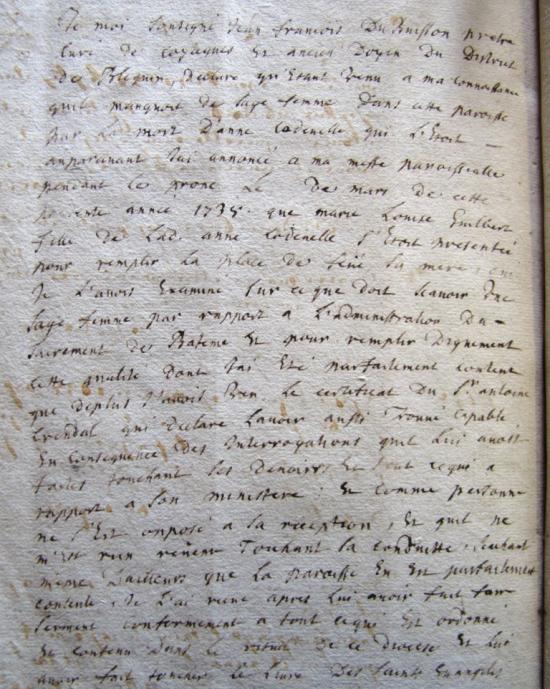 Je moi soussigné Jean francois Du Buisson pretre
Curé de et ancien Doyen Du District
de Blequin, declare qu'Etant venu a ma connoissance
quil manquoit de sage femme Dans cette paroisse
par La mort D'anne qui L'Etoit
auparauant J'ai annoncé a ma messe paroissialle
pendant le prone Le De mars de cette
presente année 1735 que marie Louise Guilbert
fille de Lad. anne s'Etoit presentée
pour remplir La place de feüe sa mere
Je L'auois Examiné sur ce que doit scauoir Une
sage femme par rapport a L'administration Du
sacrement de Bateme Et pour remplir Dignement
cette qualité Dont J'ai Eté parfaitement content
que deplus J'auois Veu Le certificat Du Sr antoine
qui declare L'auoir aussi Trouué Capable
En Consequence Des Interrogations quil Lui auoit
faites touchant ses Deuoirs Et tout ce qui a
rapport a son ministere : Et comme personne
ne s'Est opposé a sa reception, Et quil ne
m'est rien reuenu Touchant sa conduitte, sachant
meme D'ailleurs que La paroisse En Est parfaitement
contente, Je L'ai recue apres Lui auoir fait faire
serment conformement a tout ce qui Est ordonné
Et contenu Dans le rituel de ce diocese Et Lui
auoir fait toucher le liure Des Saints Euangiles